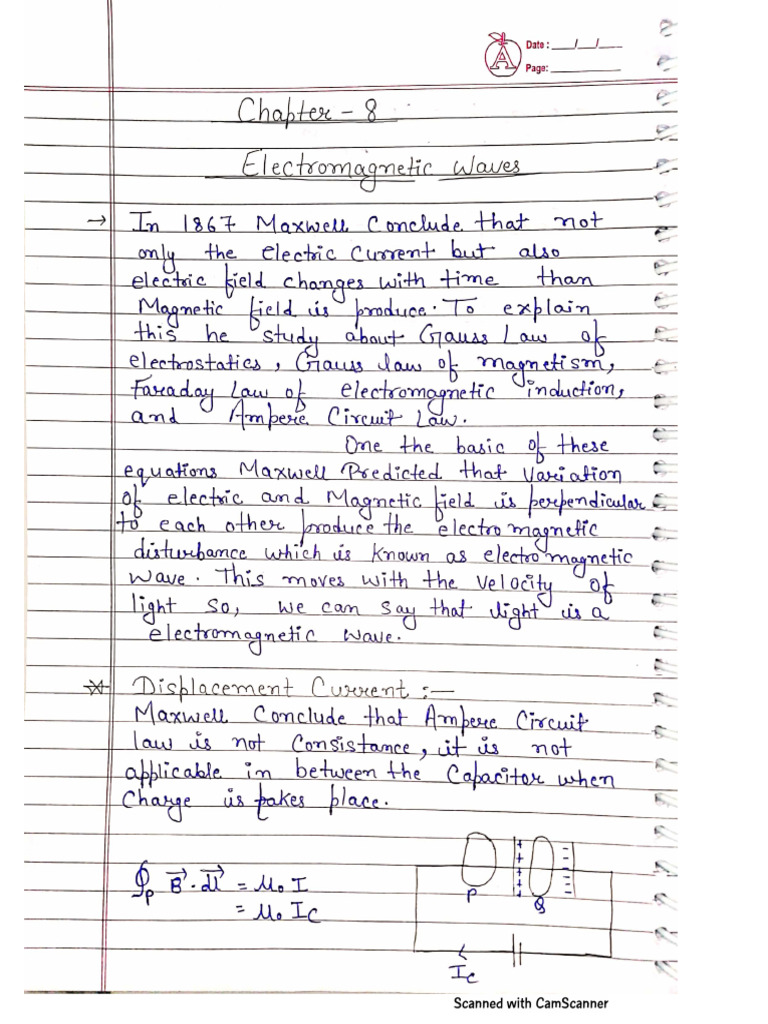 A
Date : ___/___/____
Page: ___________
Chapter - 8
Electromagnetic Waves
→ In 1867 Maxwell Conclude that not
only the electric current but also
electric field changes with time than
Magnetic field is produce. To explain
this he study about Gauss Law of
electrostatics, Gauss law of magnetism,
Faraday Law of electromagnetic induction,
and Ampere Circuit Law.
One the basic of these
equations Maxwell Predicted that Variation
of electric and Magnetic field is perpendicular
to each other produce the electromagnetic
disturbance which is known as electromagnetic
wave. This moves with the velocity of
light so, we can say that light is a
electromagnetic wave.
* Displacement Current :—
Maxwell Conclude that Ampere Circuit
law is not Consistance, it is not
applicable in between the Capacitor when
Charge is takes place.
∮P B⃗ · dl⃗ = μ₀ I
= μ₀ Ic
P
+ + + +
Q
- - - -
Ic
Scanned with CamScanner